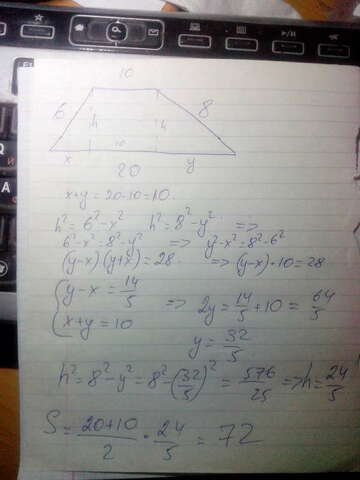 10
6 h h 8
10
x 20 y
x+y = 20-10 = 10.
h² = 6² - x² h² = 8² - y² =>
6² - x² = 8² - y² => y² - x² = 8² - 6²
(y-x)(y+x) = 28. => (y-x)·10 = 28
{ y-x = 14/5 => 2y = 14/5 + 10 = 64/5
x+y = 10
y = 32/5
h² = 8² - y² = 8² - (32/5)² = 576/25 => h = 24/5
S = 20+10/2 · 24/5 = 72